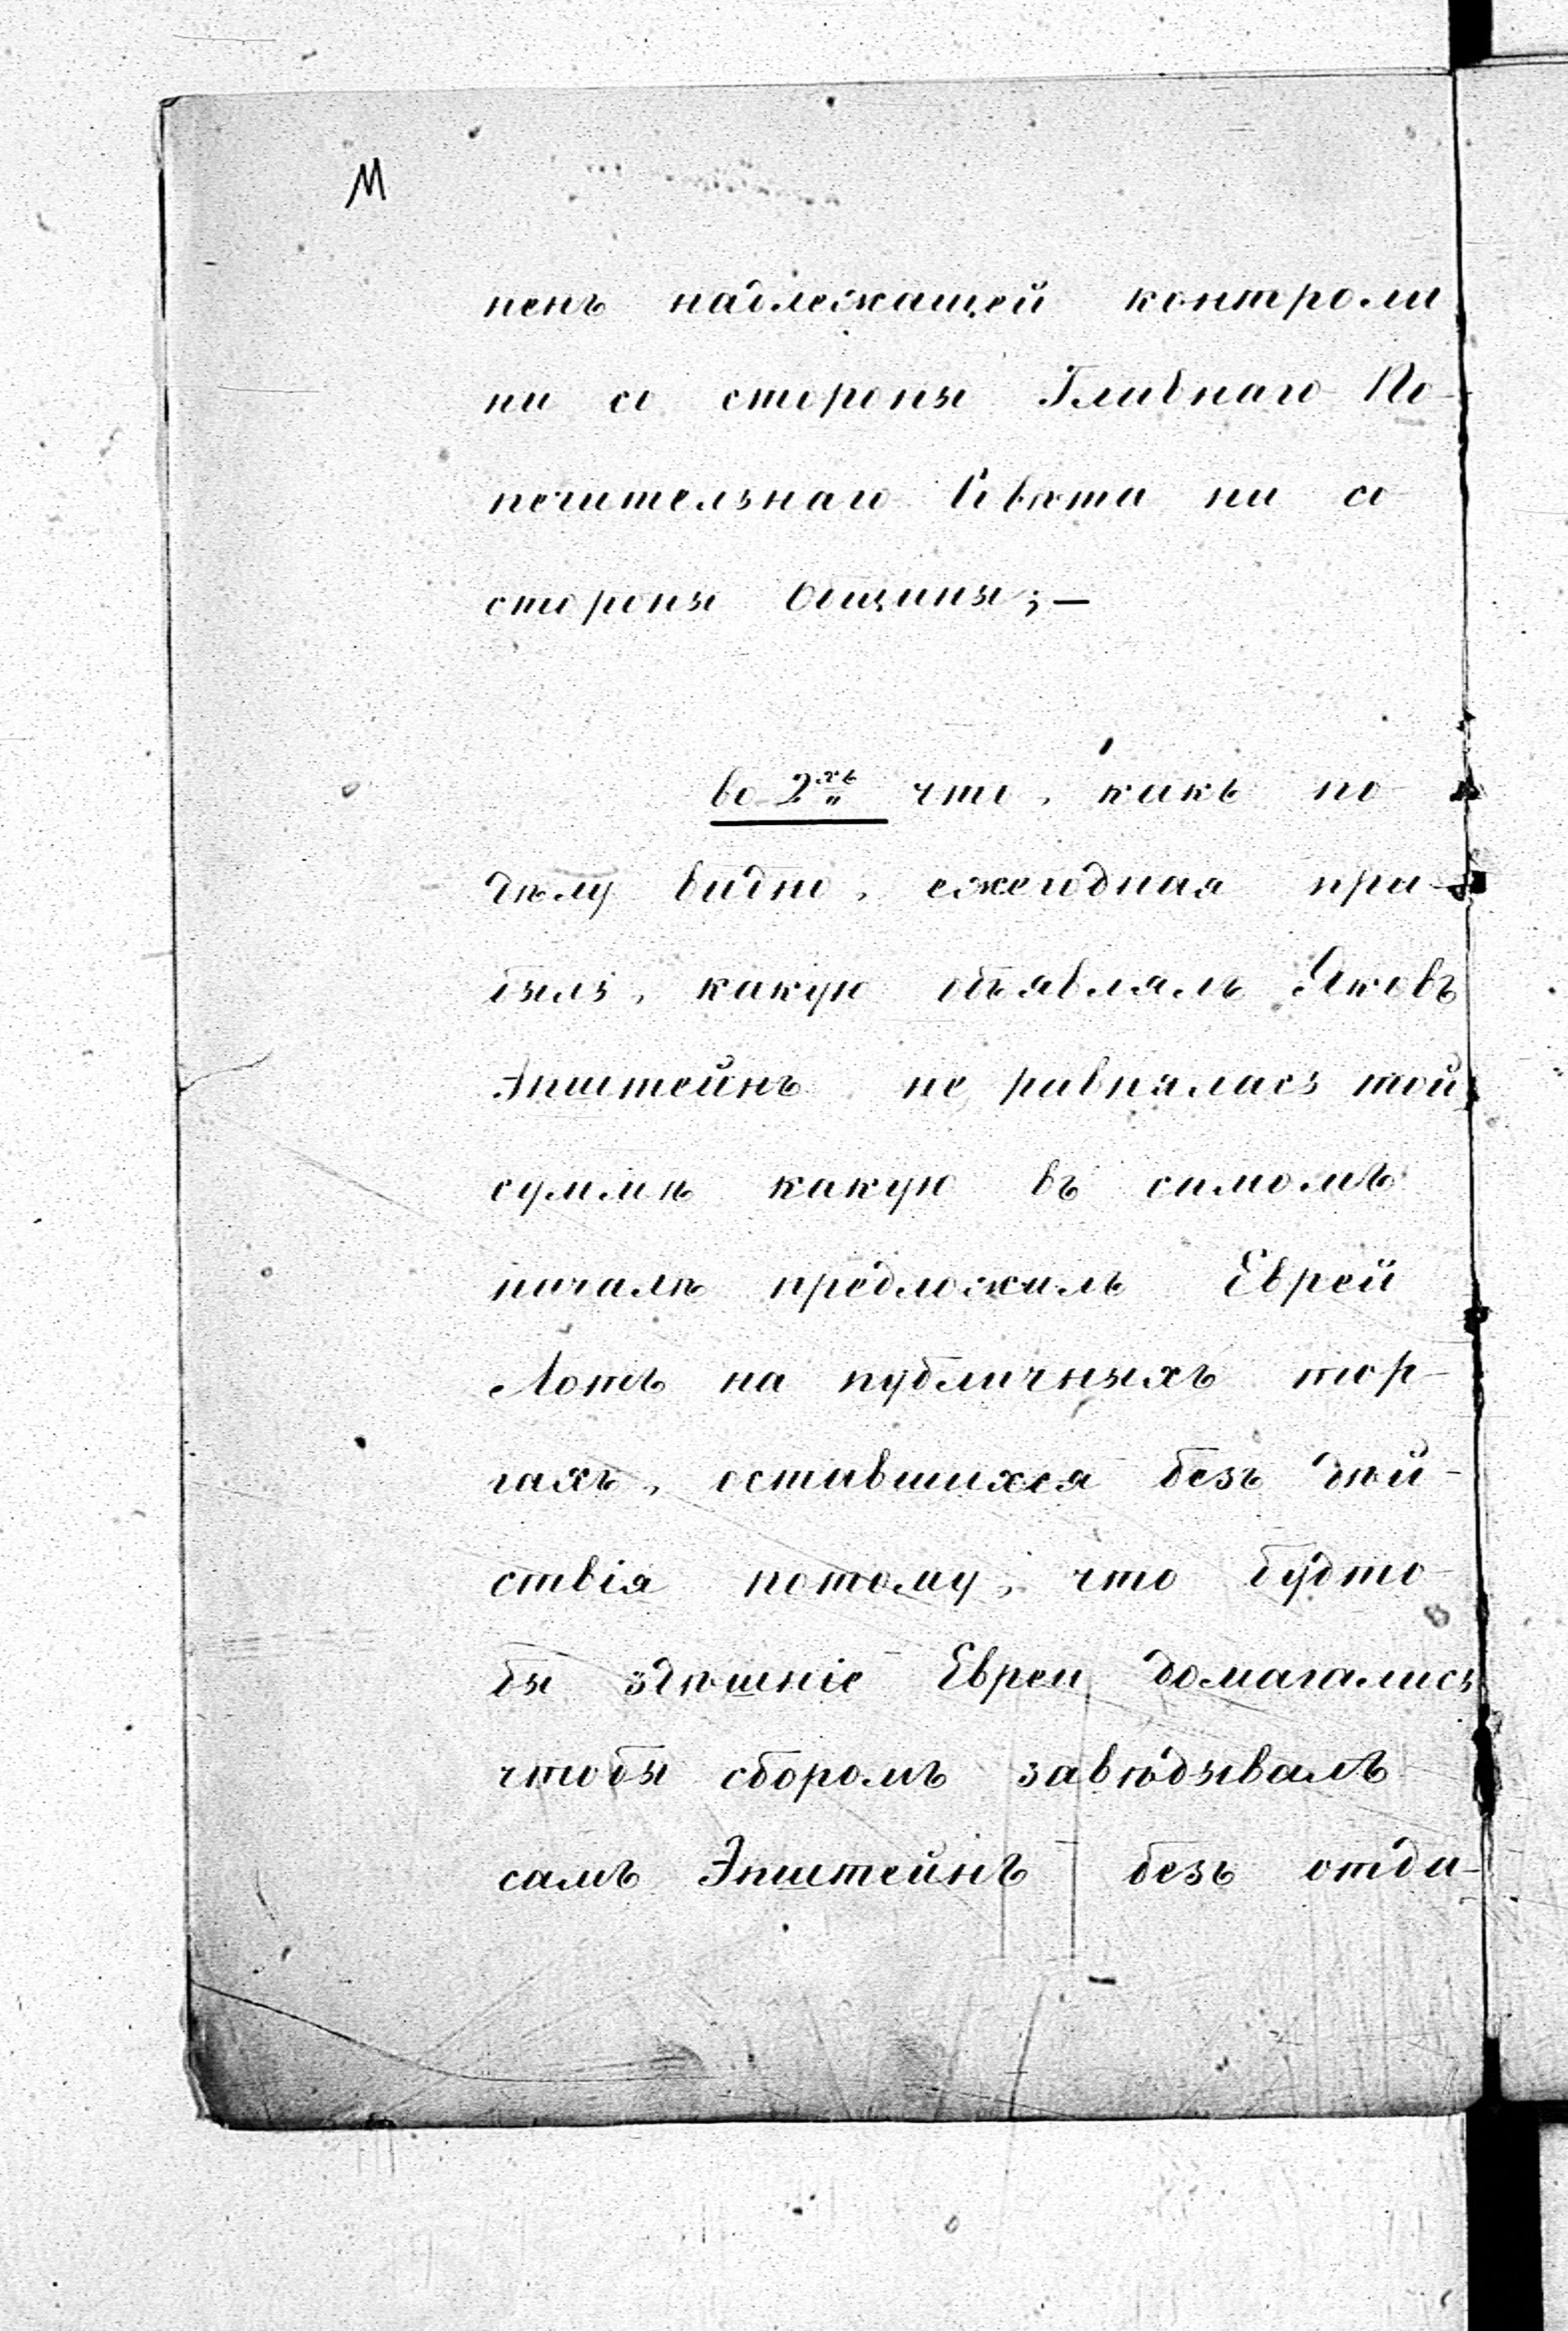 М
ненъ надлежащей контроли
ни со стороны Главнаго По-
печительнаго Совѣта ни со
стороны Общины; —
во 2хъ что, какъ по
дѣлу видно, ежегодная при-
быль, какую объявлялъ Яковъ
Эпштейнъ не равнялась той
суммѣ какую въ самомъ
началѣ предложилъ Еврей
Лотъ на публичныхъ тор-
гахъ, оставшихся безъ дѣй-
ствія потому, что будто
бы здѣшніе Евреи домагались
чтобы сборомъ завѣдывалъ
самъ Эпштейнъ безъ отда-